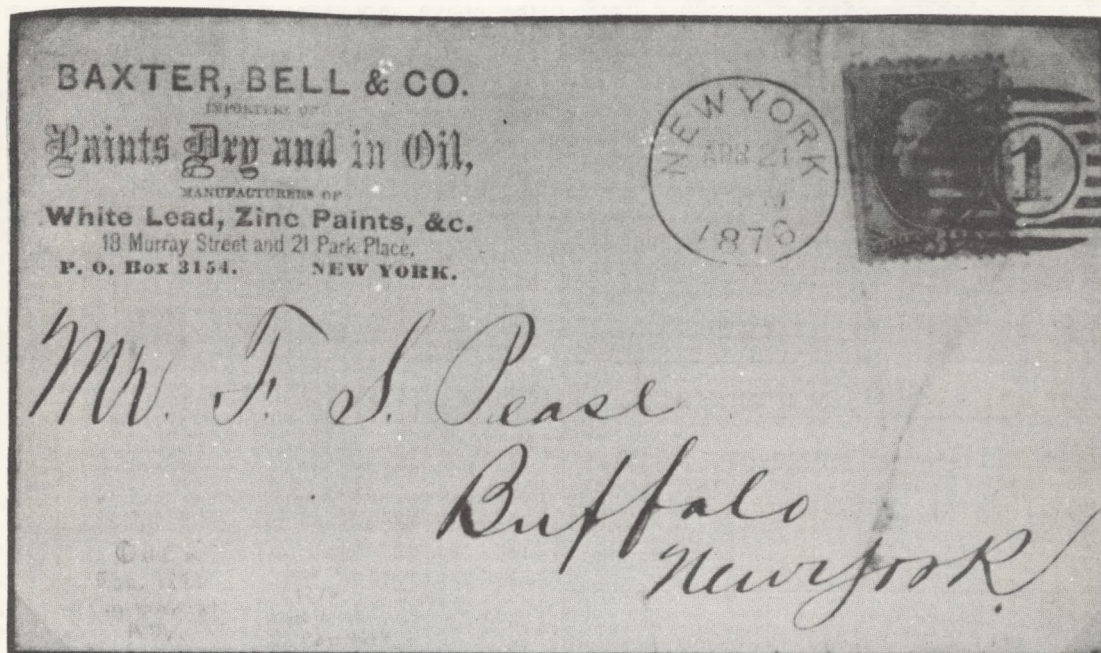 BAXTER, BELL & CO.
IMPORTERS OF
Paints Dry and in Oil,
MANUFACTURERS OF
White Lead, Zinc Paints, &c.
18 Murray Street and 21 Park Place,
P. O. Box 3154. NEW YORK.
NEW YORK
APR 21
1876
1
Mr. F. S. Pease
Buffalo
New York